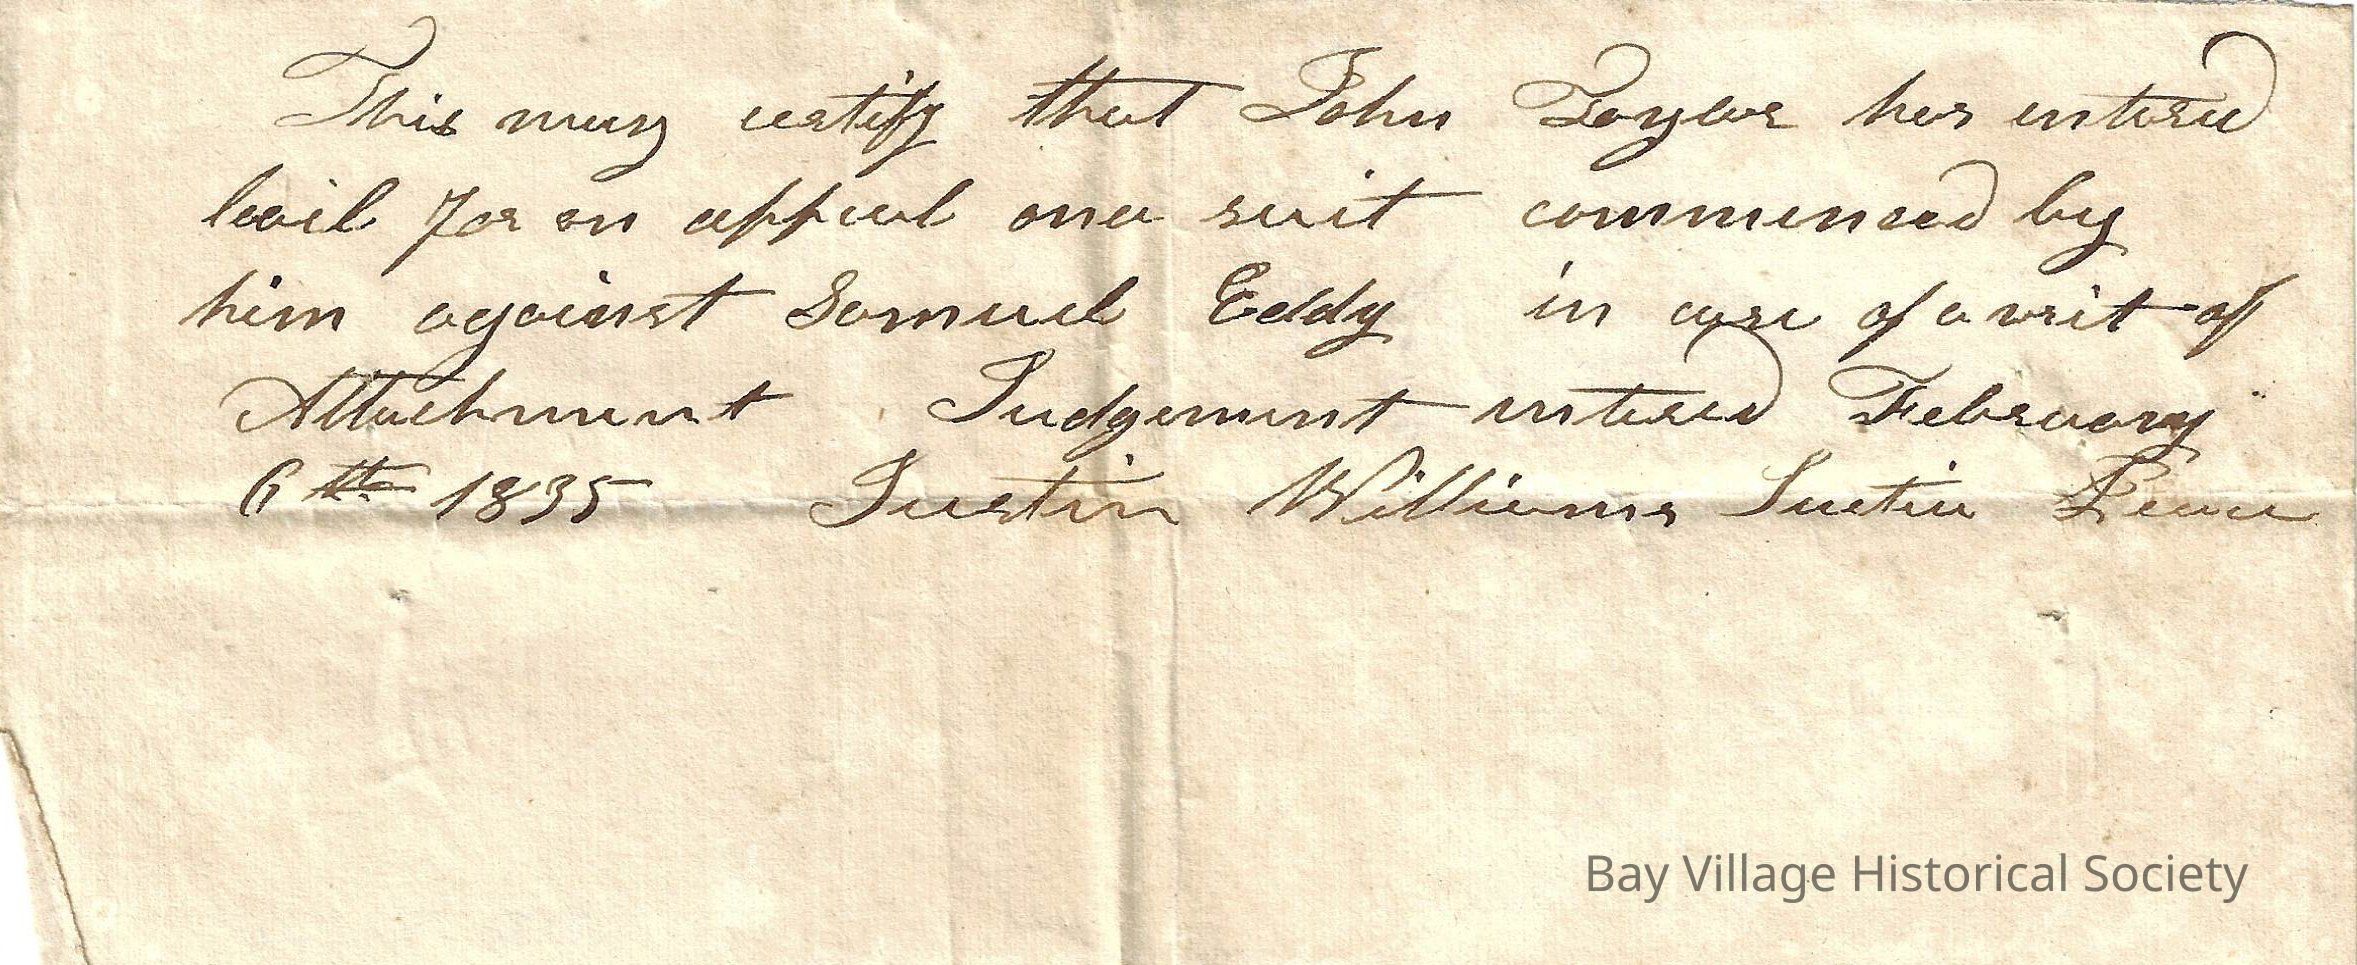 This may certify that John Taylor has enterd
bail for an appeal one suit commenced by
him against Samuel Eddy in case of a writ of
Attachment Judgement enterd February
6th 1835 Justin Williams Justice Peace
Bay Village Historical Society